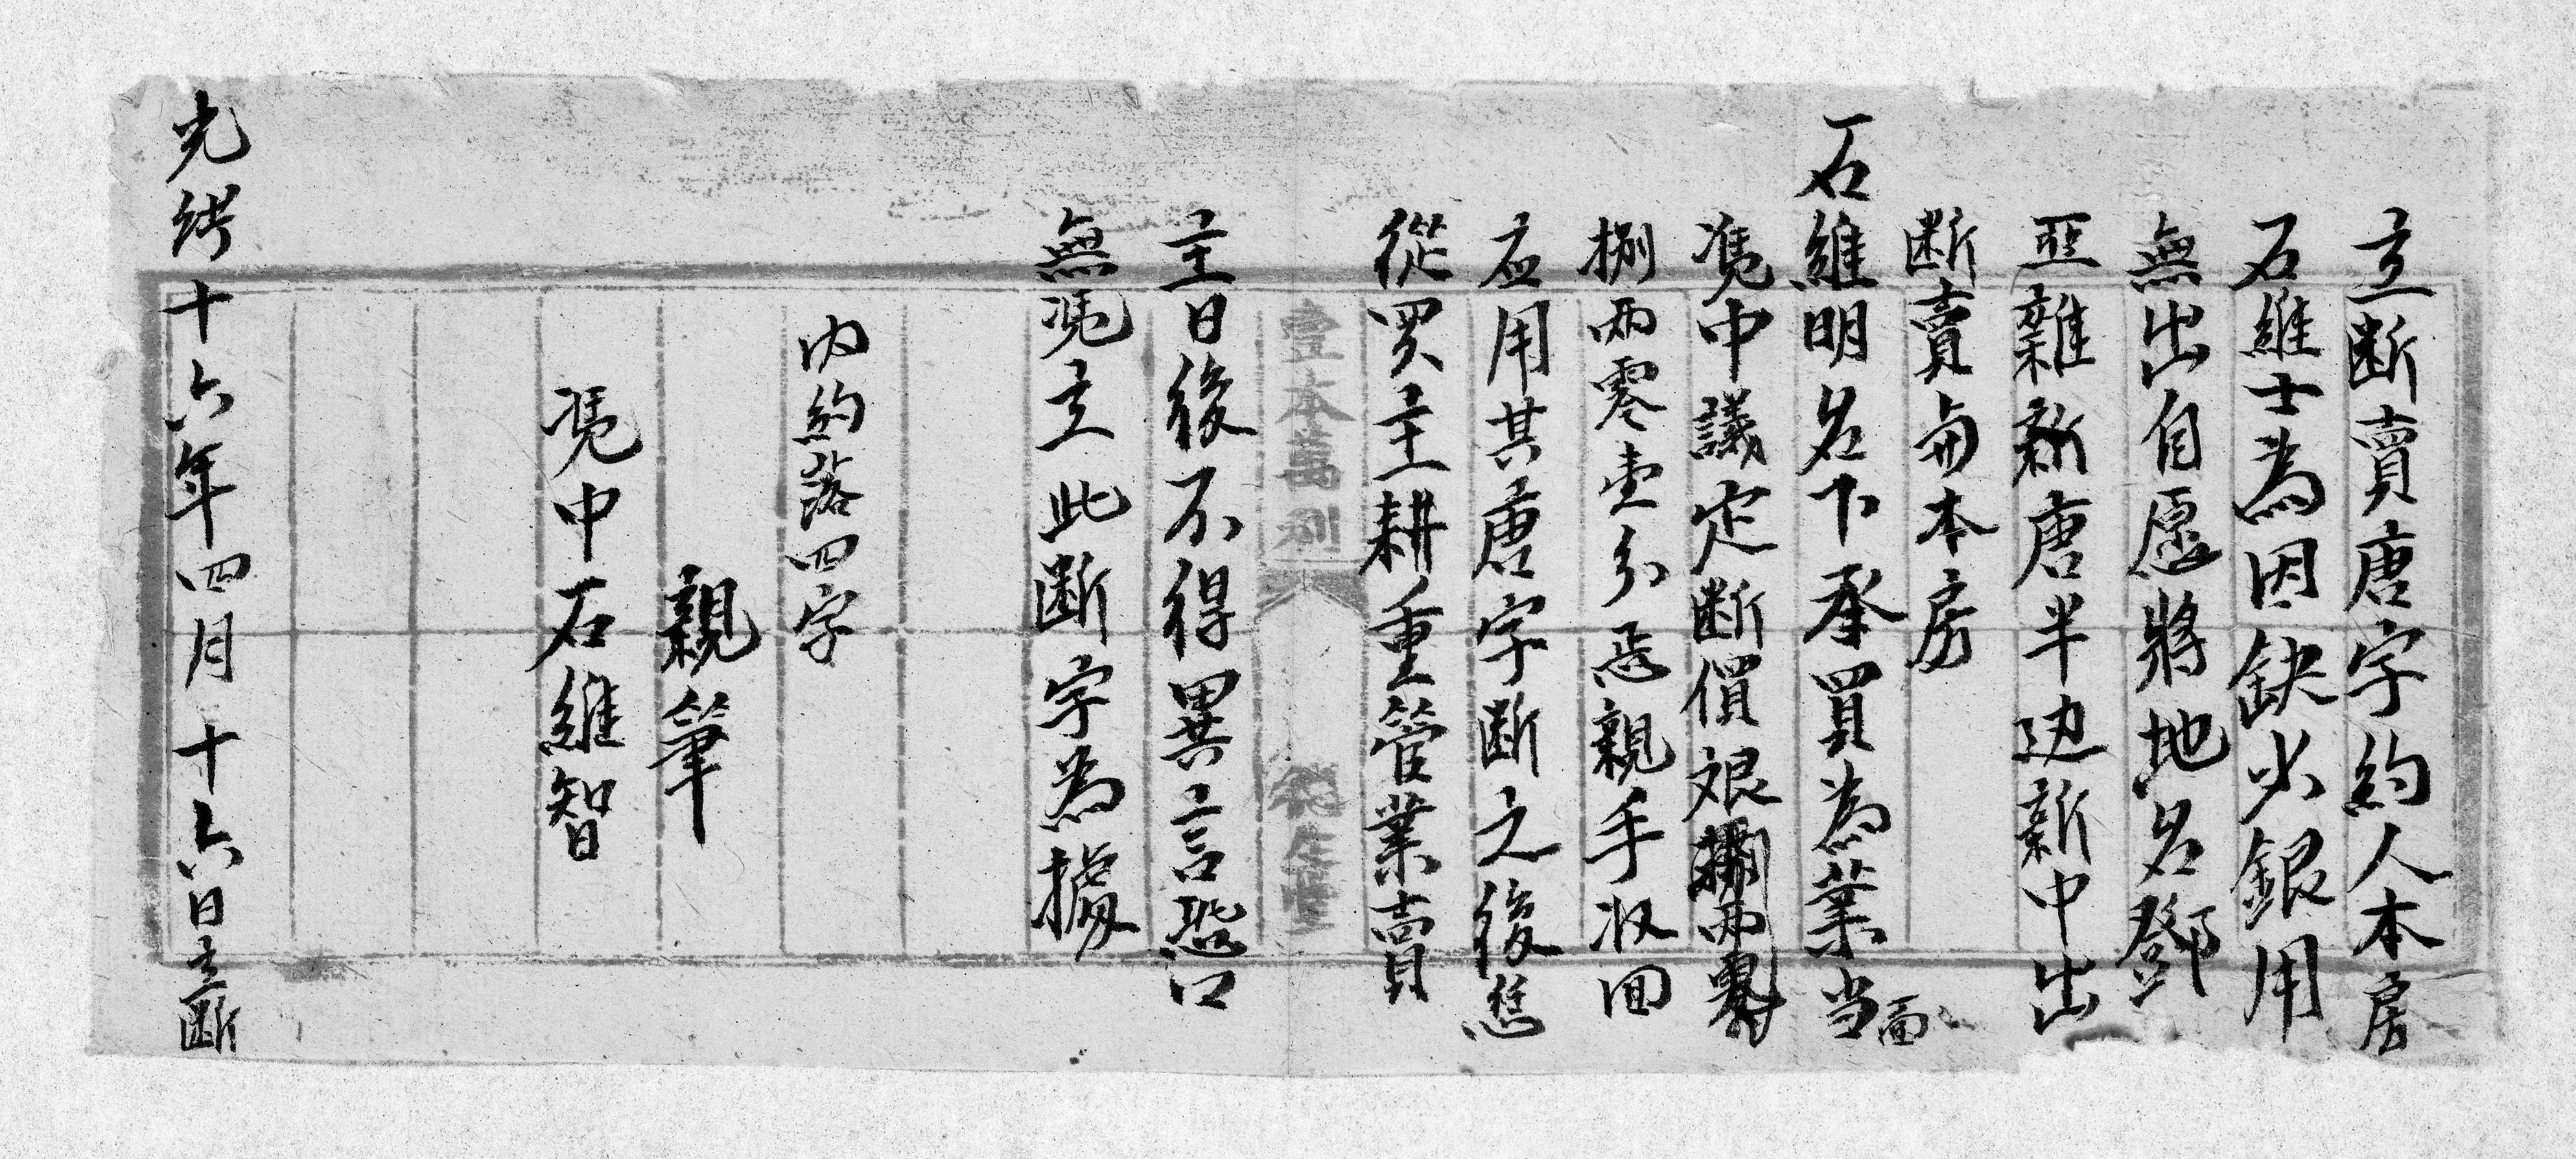 立断賣唐字約人本房
石維士為因缺少銀用
無出自愿將地名鄧
亚雜新唐半边新中出
断賣與本房
石維明名下承買為業当面
凴中議定断價艮捌兩零
捌兩零壹分恁親手收囬
应用其唐字断之後恁
從買主耕重管業賣
壹本萬利
主日後不得異言恐口
無凴立此断字為據
内約落四字
親筆
凴中石維智
光緒十六年四月十六日立断